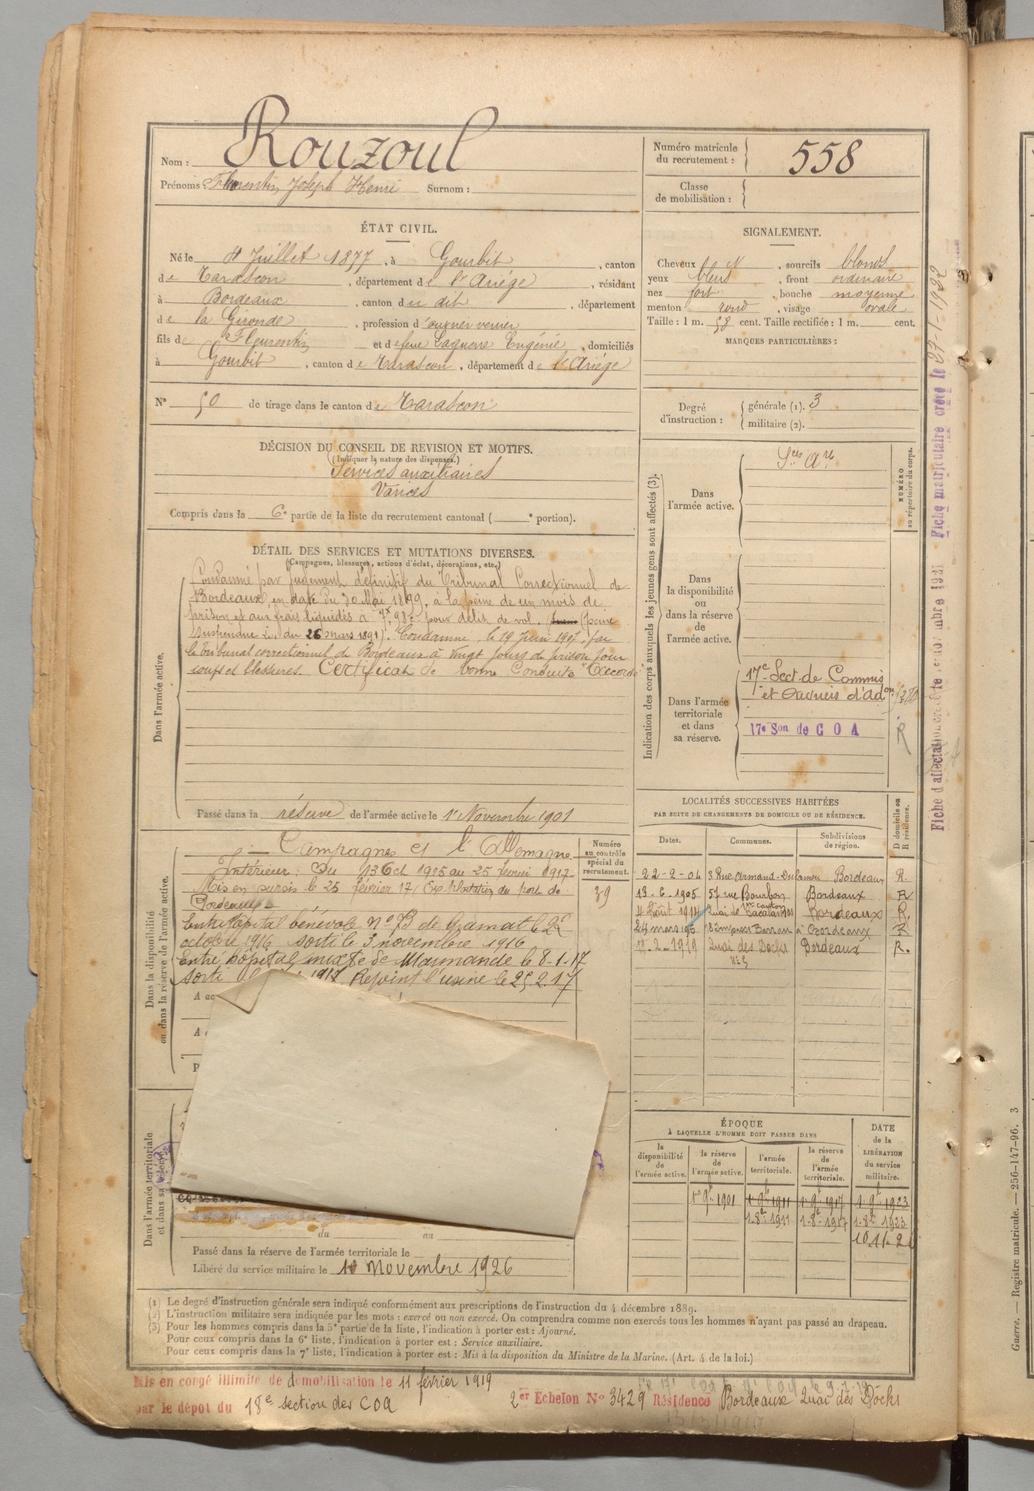 Nom : Rouzoul
Prénoms : Florentin, Joseph Henri Surnom :
Numéro matricule du recrutement : 558
Classe de mobilisation :
ÉTAT CIVIL.
Né le 4 Juillet 1877, à Gourbit, canton
de Tarascon, département de l'Ariège, résidant
à Bordeaux, canton de dit, département
de la Gironde, profession d'ouvrier verrier
fils de Florentin et de feue Eugénie, domiciliés
à Gourbit, canton de Tarascon, département de l'Ariège
N° 50 de tirage dans le canton de Tarascon
SIGNALEMENT.
Cheveux bl, sourcils blonds
yeux bleus, front ordinaire
nez fort, bouche moyenne
menton rond, visage ovale
Taille : 1 m. 58 cent. Taille rectifiée : 1 m. cent.
MARQUES PARTICULIÈRES :
Degré d'instruction : générale (1). 3
militaire (2).
DÉCISION DU CONSEIL DE REVISION ET MOTIFS.
(Indiquer la nature des dispenses.)
Services auxiliaires
Varices
Compris dans la 6e partie de la liste du recrutement cantonal ( e portion).
DÉTAIL DES SERVICES ET MUTATIONS DIVERSES.
(Campagnes, blessures, actions d'éclat, décorations, etc.)
Dans l'armée active.
Condamné par jugement définitif du Tribunal Correctionnel de
Bordeaux en date du 30 Mai 1899, à la peine de un mois de
prison et aux frais liquidés à 7 98 pour délit de vol. (peine
suspendue L. du 26 mars 1891). Condamné, le 19 juin 1907, par
le tribunal correctionnel de Bordeaux à vingt jours de prison pour
coups et blessures. Certificat de bonne Conduite "Accordé"
Passé dans la réserve de l'armée active le 1er Novembre 1901
Indication des corps auxquels les jeunes gens sont affectés (3).
NUMÉRO au répertoire du corps.
Dans l'armée active.
Ses Are
Dans la disponibilité ou dans la réserve de l'armée active.
Dans l'armée territoriale et dans sa réserve.
17e Sect de Commis
et Ouvriers d'Adon
17e Son de C O A
R
Fiche matriculaire créée le 27-1-1922
LOCALITÉS SUCCESSIVES HABITÉES
PAR SUITE DE CHANGEMENTS DE DOMICILE OU DE RÉSIDENCE.
D domicile ou R résidence.
Dates. Communes. Subdivisions de région.
22-2-04 3 Rue Armand Bordeaux R
13-6-1905 57 rue Bourbon Bordeaux R
4 Août 1914 Quai de Bacalan Bordeaux R
24 mars Bordeaux R
2-1919 Quai des Docks Bordeaux R.
N° 5
Dans la disponibilité ou dans la réserve de l'armée active.
Campagnes ct l'Allemagne
Intérieur : Du 13 Oct 1915 au 25 février 1917
Mis en sursis le 25 février 17 Exploitation du Port de
Bordeaux
Entré hôpital bénévole N° 73 de Gramat le 22
octobre 1916 sorti le 3 novembre 1916
Entré hôpital mixte de Marmande le 8-1-17
sorti 1917 Rejoint l'usine le 25 2 17
Numéro au contrôle spécial du recrutement.
39
A
A
Dans l'armée territoriale et dans sa réserve.
du au
Passé dans la réserve de l'armée territoriale le
Libéré du service militaire le 10 Novembre 1926
ÉPOQUE
À LAQUELLE L'HOMME DOIT PASSER DANS
la disponibilité de l'armée active.
la réserve de l'armée active.
l'armée territoriale.
la réserve de l'armée territoriale.
DATE de la LIBÉRATION du service militaire.
1er 9bre 1901 1er 9bre 1911 1er 9bre 1917 1er 9bre 1923
1-8bre 1911 1-8bre 1917 1-8bre 1923
(1) Le degré d'instruction générale sera indiqué conformément aux prescriptions de l'instruction du 4 décembre 1889.
(2) L'instruction militaire sera indiquée par les mots : exercé ou non exercé. On comprendra comme non exercés tous les hommes n'ayant pas passé au drapeau.
(3) Pour les hommes compris dans la 5e partie de la liste, l'indication à porter est : Ajourné.
Pour ceux compris dans la 6e liste, l'indication à porter est : Service auxiliaire.
Pour ceux compris dans la 7e liste, l'indication à porter est : Mis à la disposition du Ministre de la Marine. (Art. 4 de la loi.)
Mis en congé illimité de démobilisation le 11 février 1919
par le dépôt du 18e section des COA
2er Echelon N° 3429 Résidence Bordeaux Quai des Docks
Guerre. — Registre matricule. — 256-147-96. 3